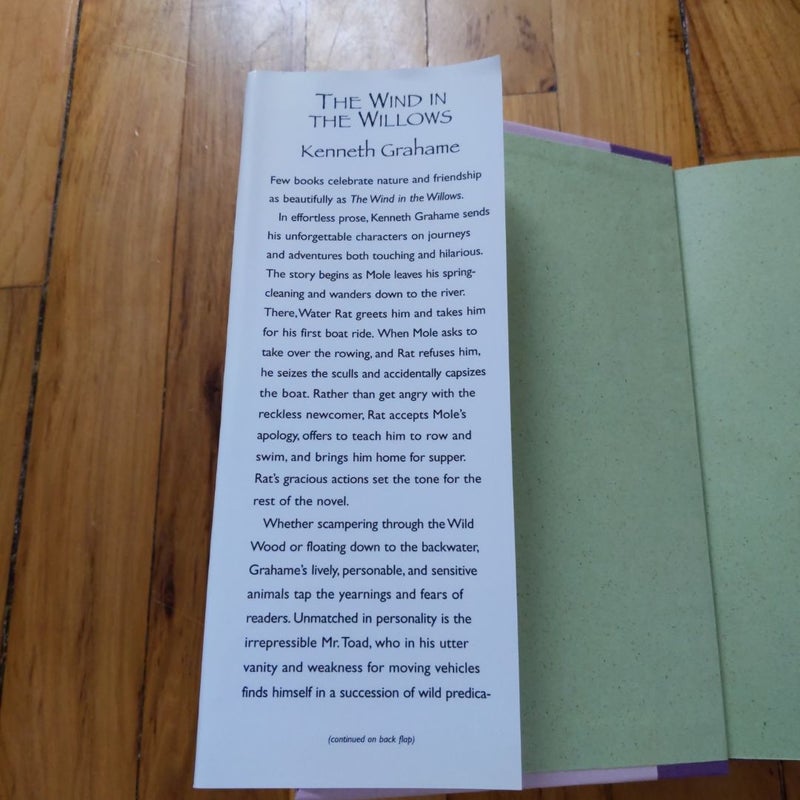 THE WIND IN
THE WILLOWS
Kenneth Grahame
Few books celebrate nature and friendship
as beautifully as The Wind in the Willows.
In effortless prose, Kenneth Grahame sends
his unforgettable characters on journeys
and adventures both touching and hilarious.
The story begins as Mole leaves his spring-
cleaning and wanders down to the river.
There, Water Rat greets him and takes him
for his first boat ride. When Mole asks to
take over the rowing, and Rat refuses him,
he seizes the sculls and accidentally capsizes
the boat. Rather than get angry with the
reckless newcomer, Rat accepts Mole's
apology, offers to teach him to row and
swim, and brings him home for supper.
Rat's gracious actions set the tone for the
rest of the novel.
Whether scampering through the Wild
Wood or floating down to the backwater,
Grahame's lively, personable, and sensitive
animals tap the yearnings and fears of
readers. Unmatched in personality is the
irrepressible Mr. Toad, who in his utter
vanity and weakness for moving vehicles
finds himself in a succession of wild predica-
(continued on back flap)